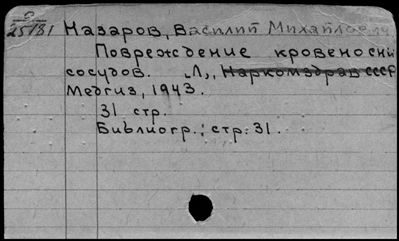 0
25181
Назаров, Василий Михайлович
Повреждение кровеносн
сосудов. Л., Наркомздрав СССР
Медгиз, 1943.
31 стр.
Библиогр.: стр. 31.